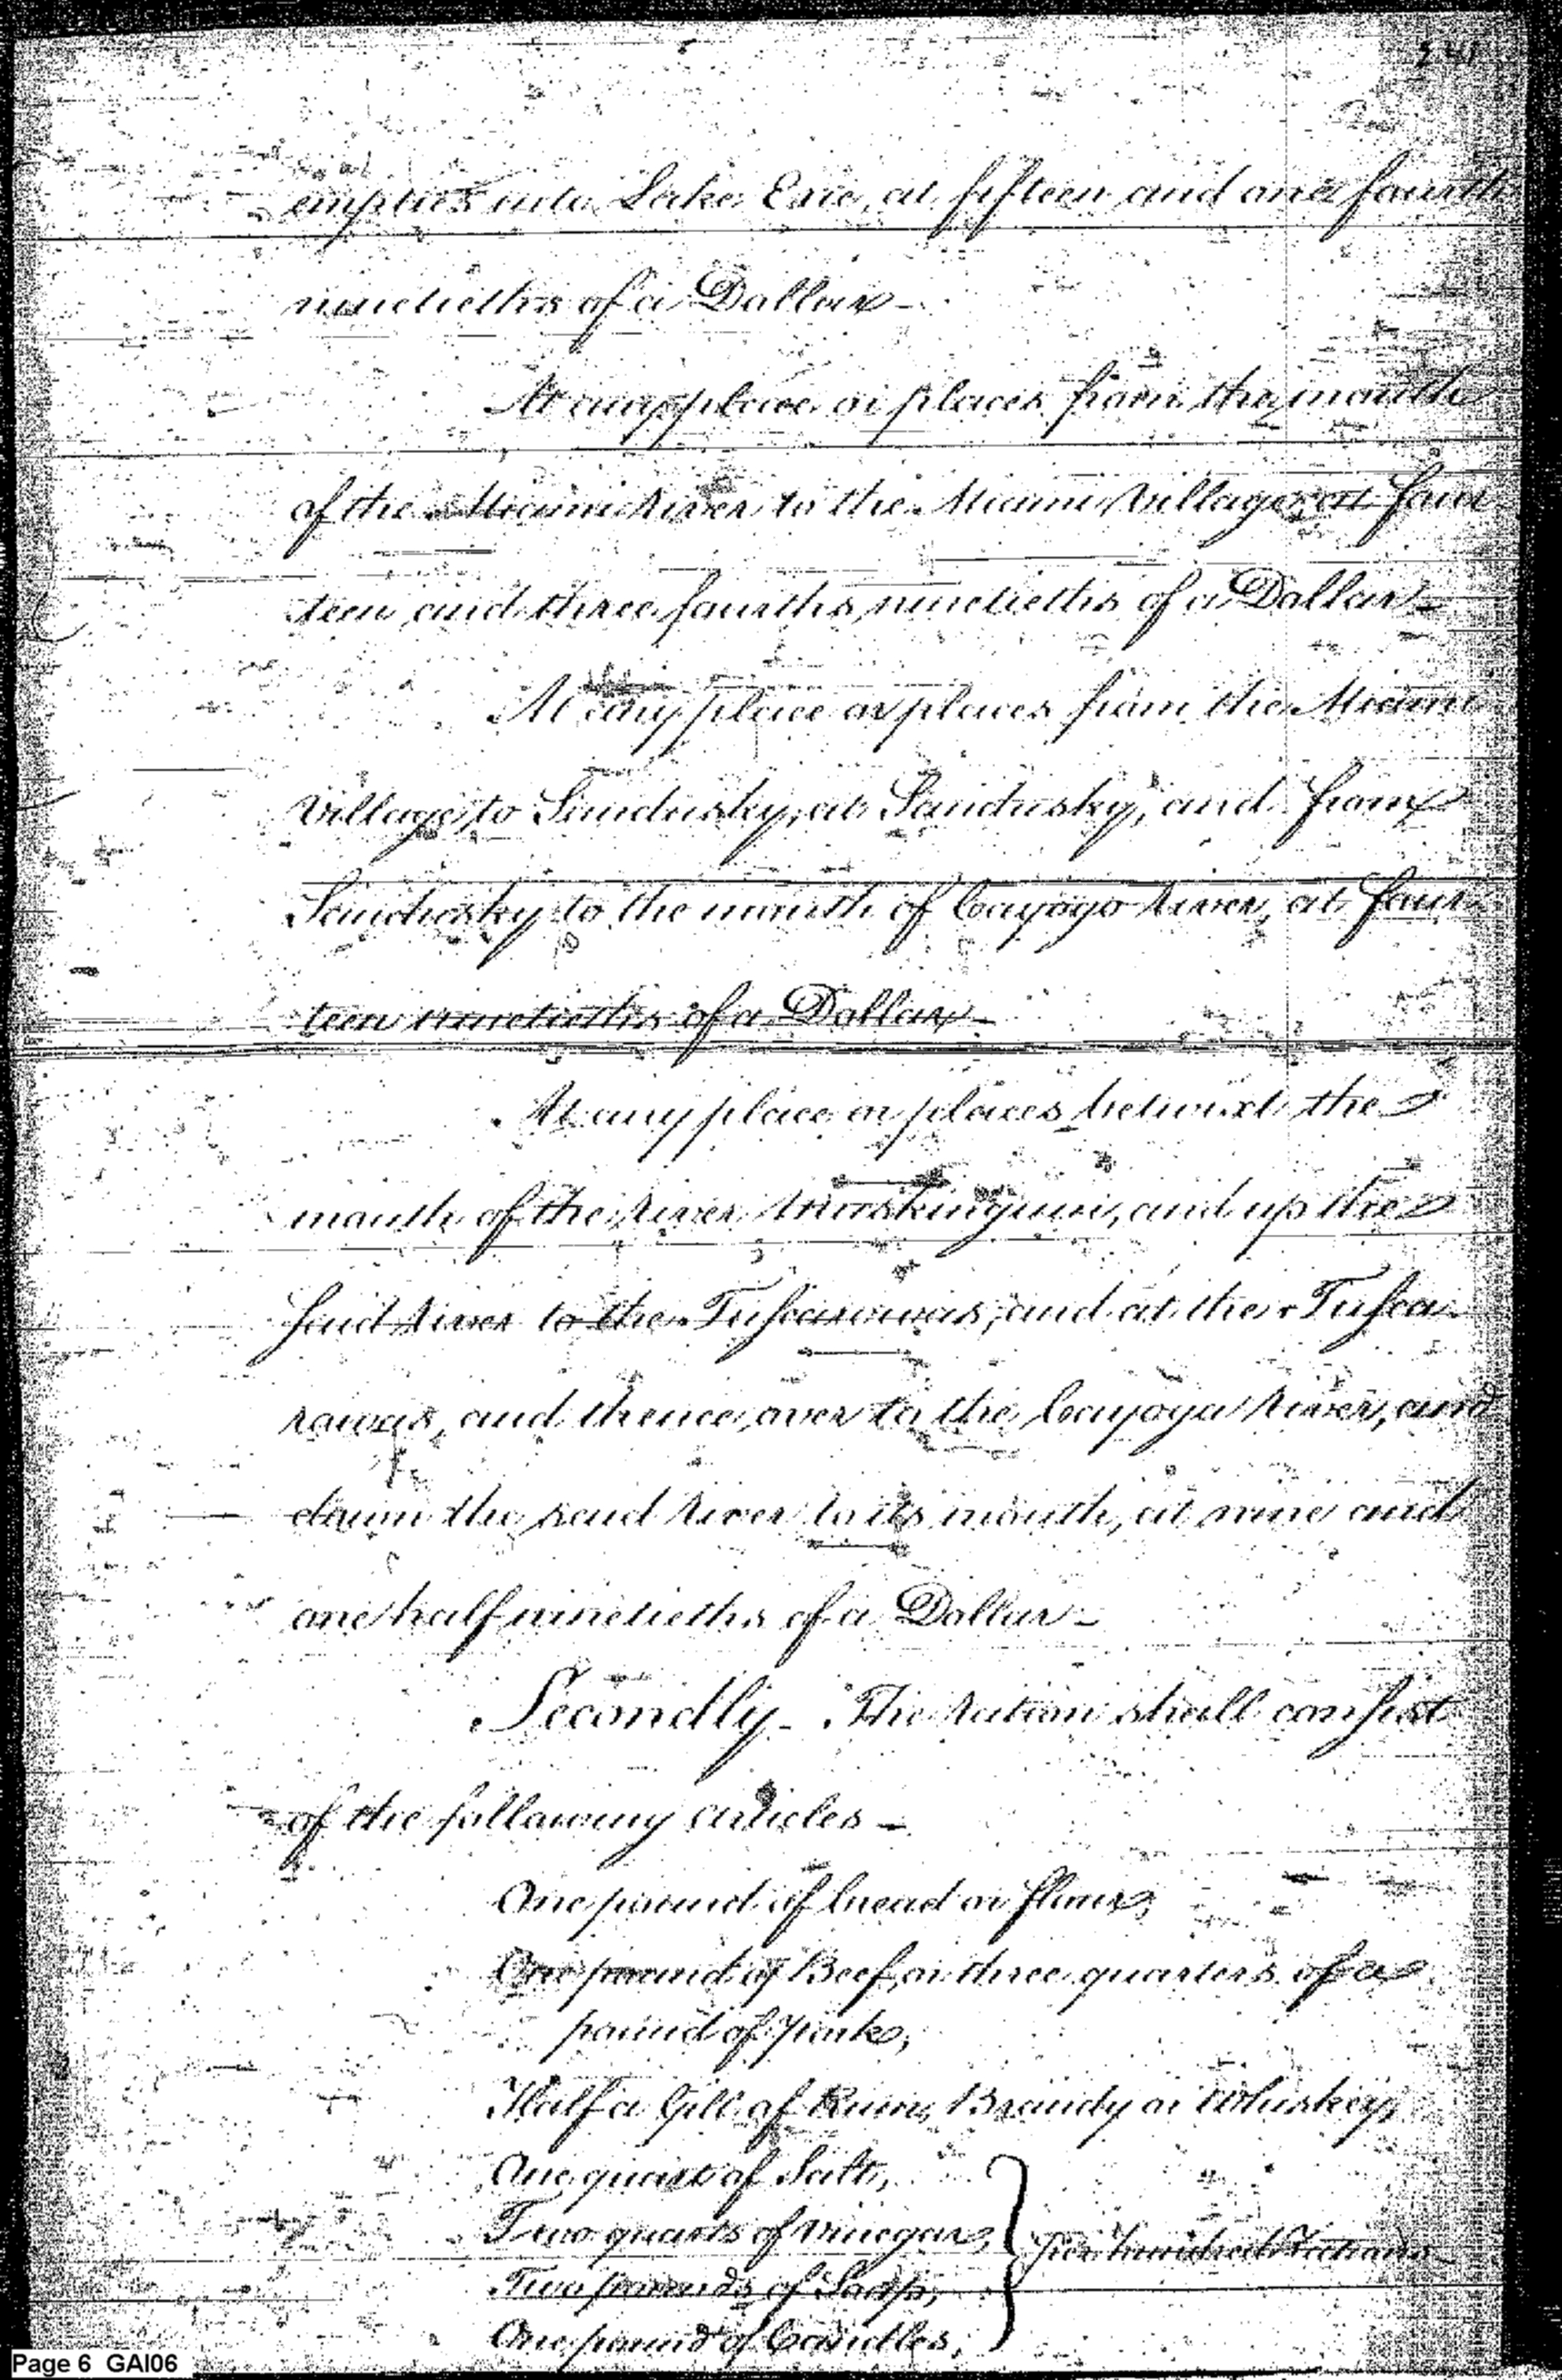 241
empties into Lake Erie, at fifteen and one fourth
ninetieths of a Dollar—
At any place or places from the mouth
of the Miami River to the Miami Village, at four
teen and three fourths ninetieths of a Dollar—
At any place or places from the Miami
Village to Sandusky, at Sandusky, and from
Sandusky to the mouth of Cayoga River, at four
teen ninetieths of a Dollar—
At any place or places betwixt the
mouth of the River Muskingum, and up the
said River to the Tuscarawas, and at the Tusca
rawas, and thence over to the Cayoga River, and
down the said River to its mouth, at nine and
one half ninetieths of a Dollar—
Secondly— The Ration shall consist
of the following articles—
One pound of bread or flour,
One pound of Beef, or three quarters of a
pound of pork,
Half a Gill of Rum, Brandy or Whiskey,
One quart of Salt,
Two quarts of Vinegar, } per hundred Rations
Two pounds of Soap,
One pound of Candles,
Page 6 GAI06